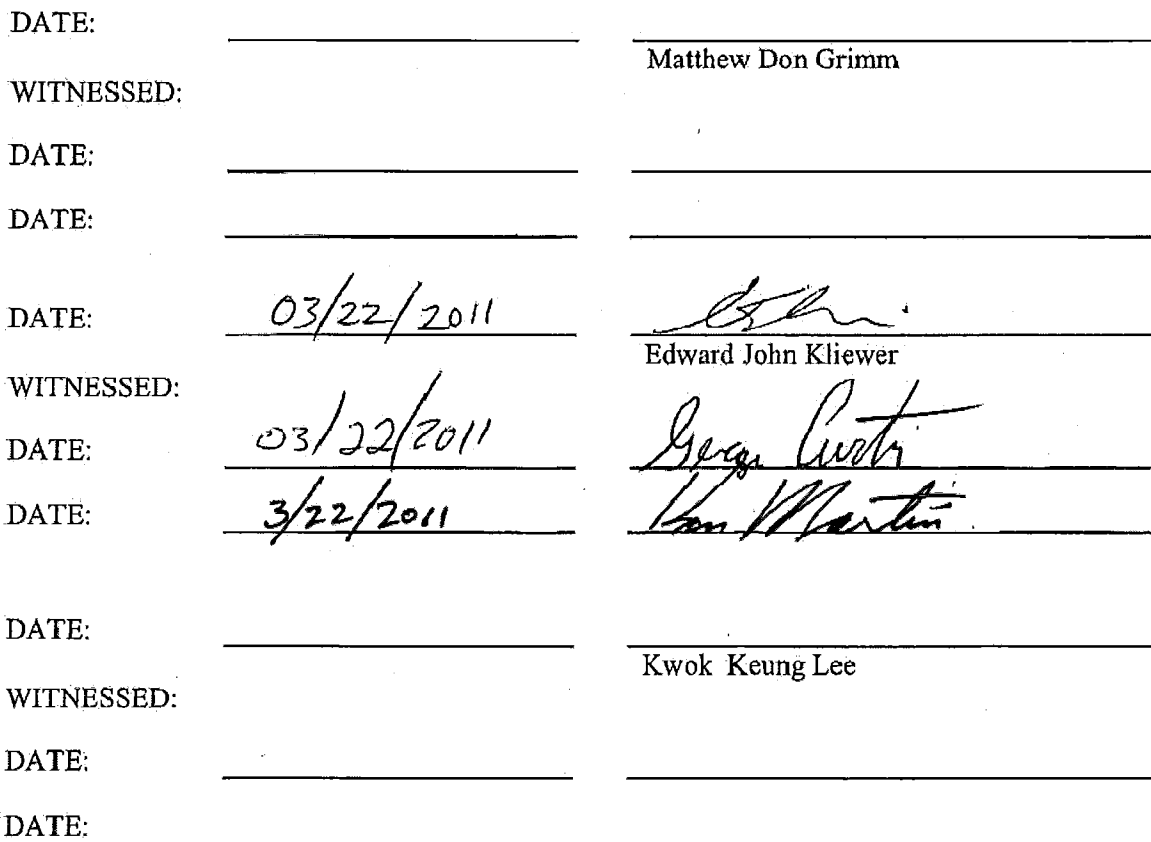 DATE:
Matthew Don Grimm
WITNESSED:
DATE:
DATE:
DATE: 03/22/2011
Edward John Kliewer
WITNESSED:
DATE: 03/22/2011 George Curtis
DATE: 3/22/2011 Ron Martin
DATE:
Kwok Keung Lee
WITNESSED:
DATE:
DATE: